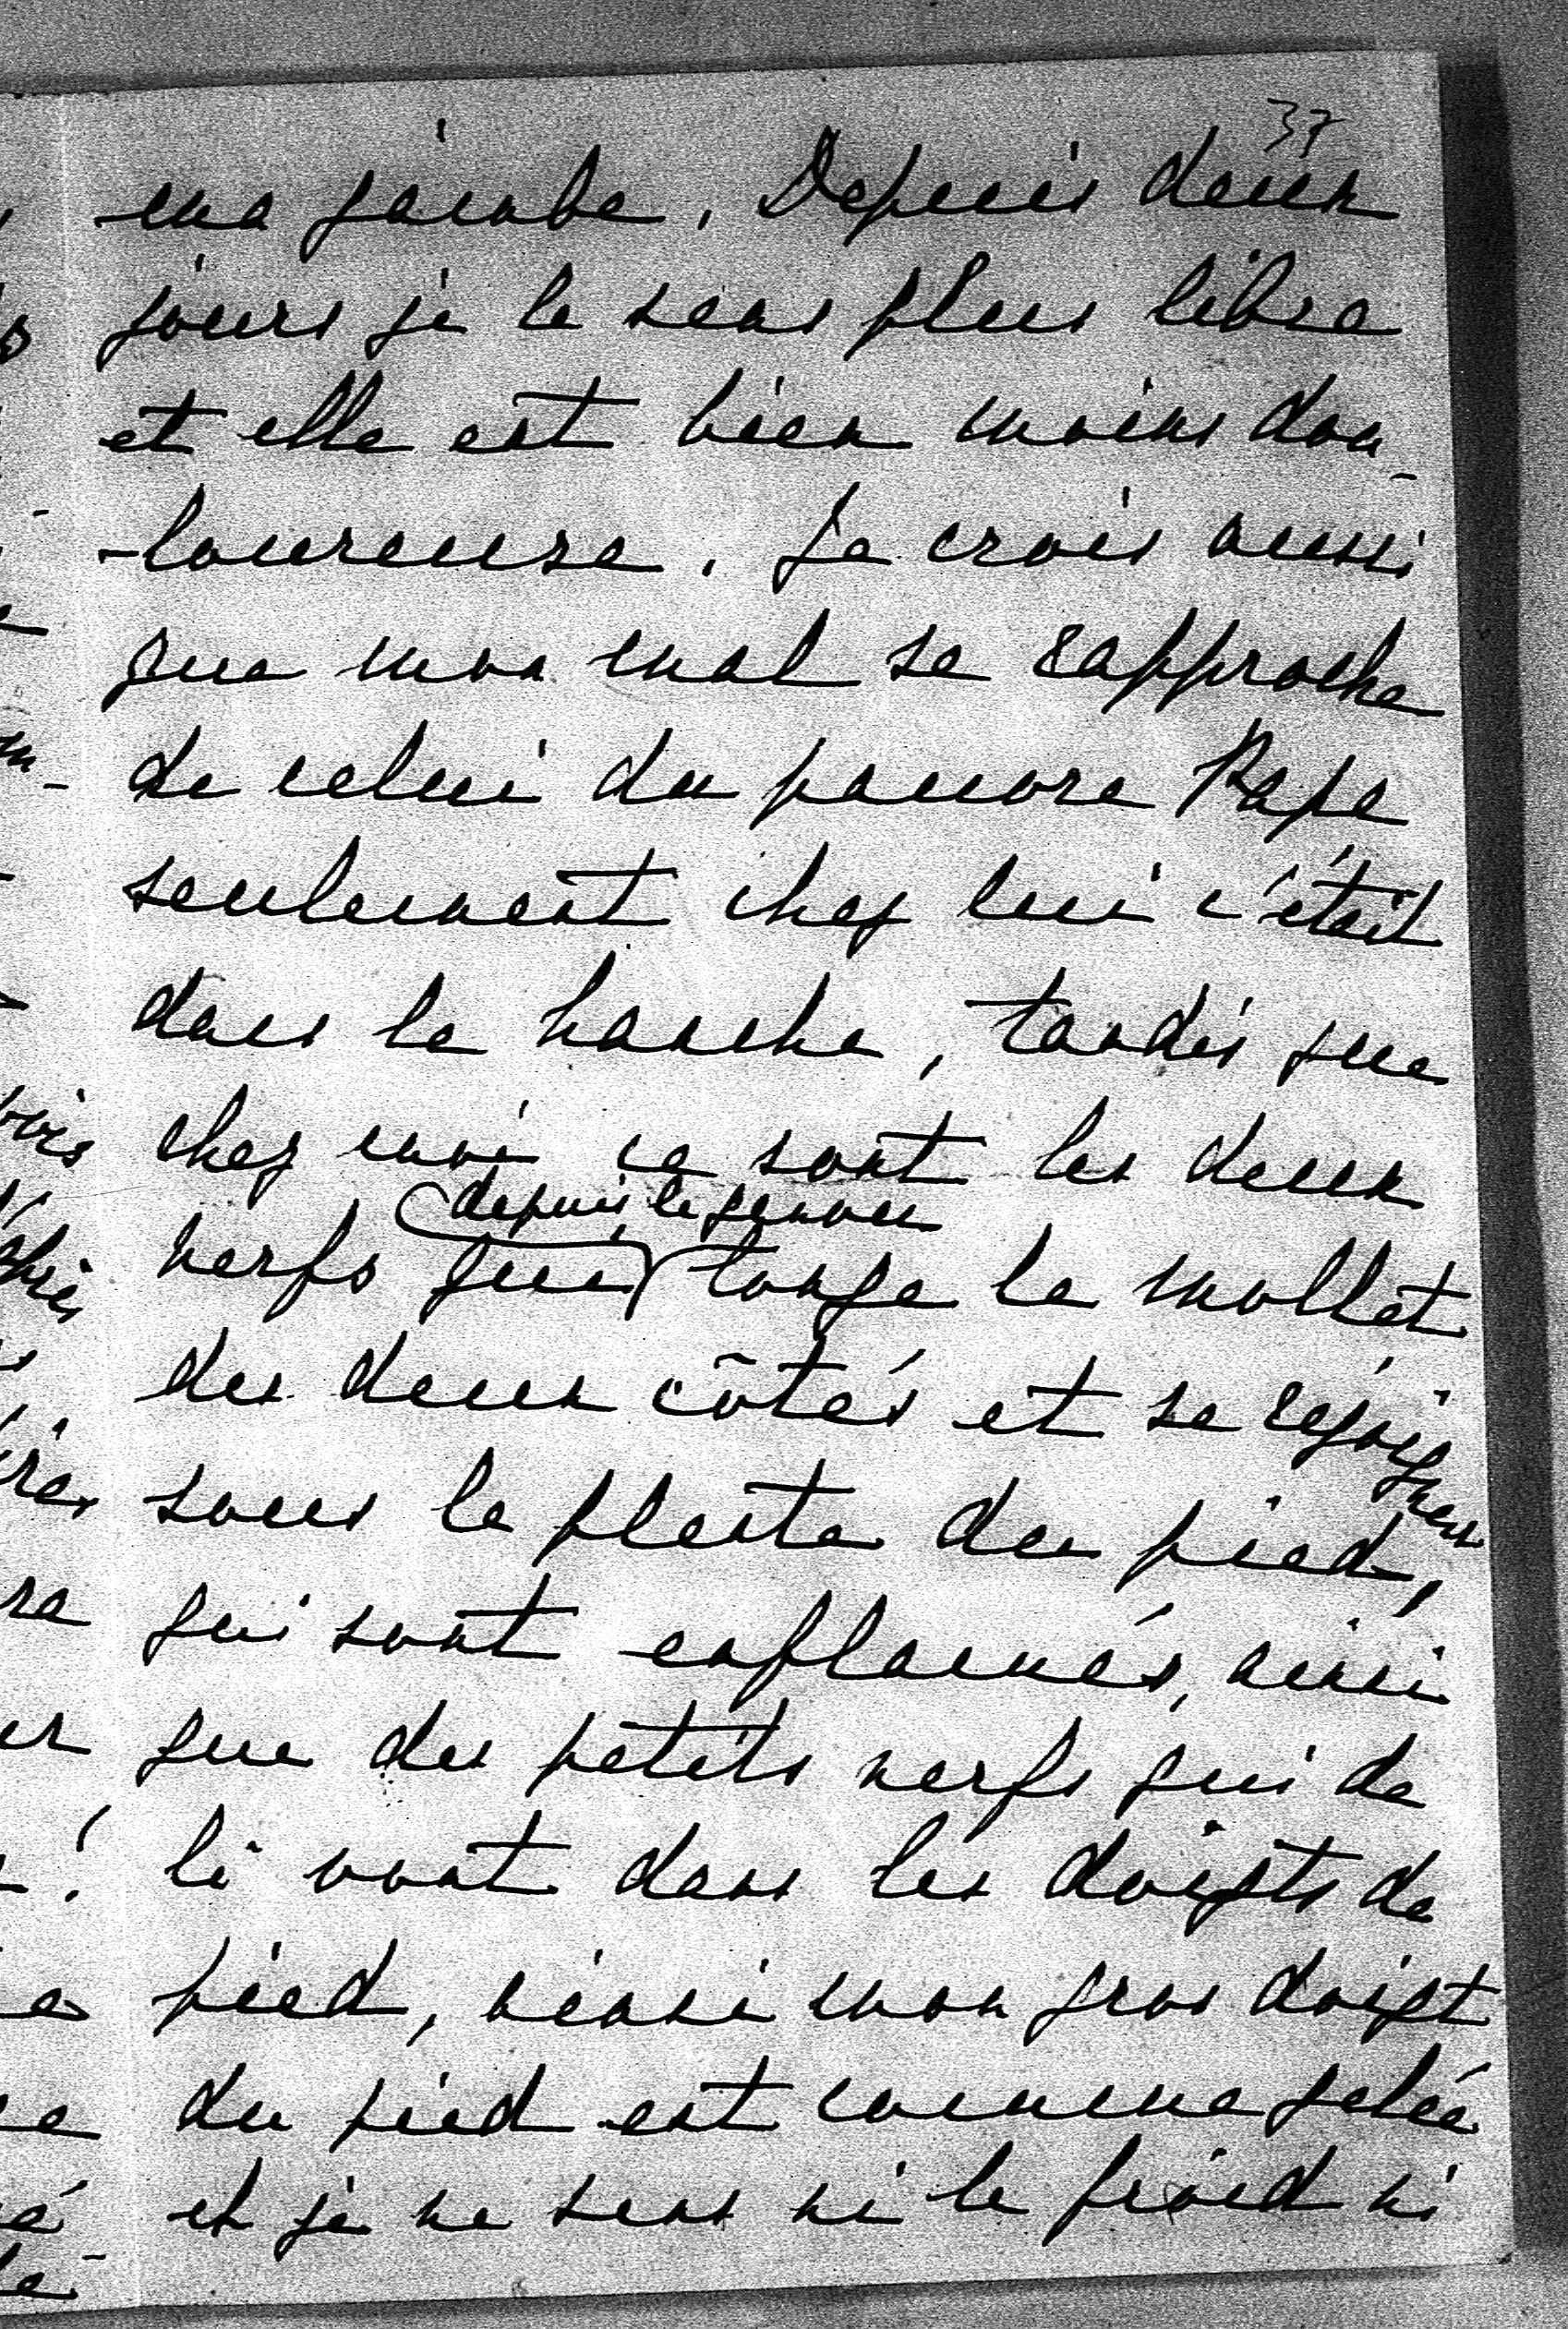 37
ma jambe. Depuis deux
jours je la sens plus libre
et elle est bien moins dou-
-loureuse. Je crois aussi
que mon mal se rapproche
de celui du pauvre Papa
seulement chez lui c'était
dans la hanche, tandis que
chez moi ce sont les deux
depuis le genou
nerfs qui longe le mollet
des deux côtés et se rejoignent
sous la plante du pied,
qui sont enflamés, ainsi
que des petits nerfs qui de
là vont dans les doigts de
pied, ainsi mon gros doigt
du pied est comme gelée
et je ne sens ni le froid ni